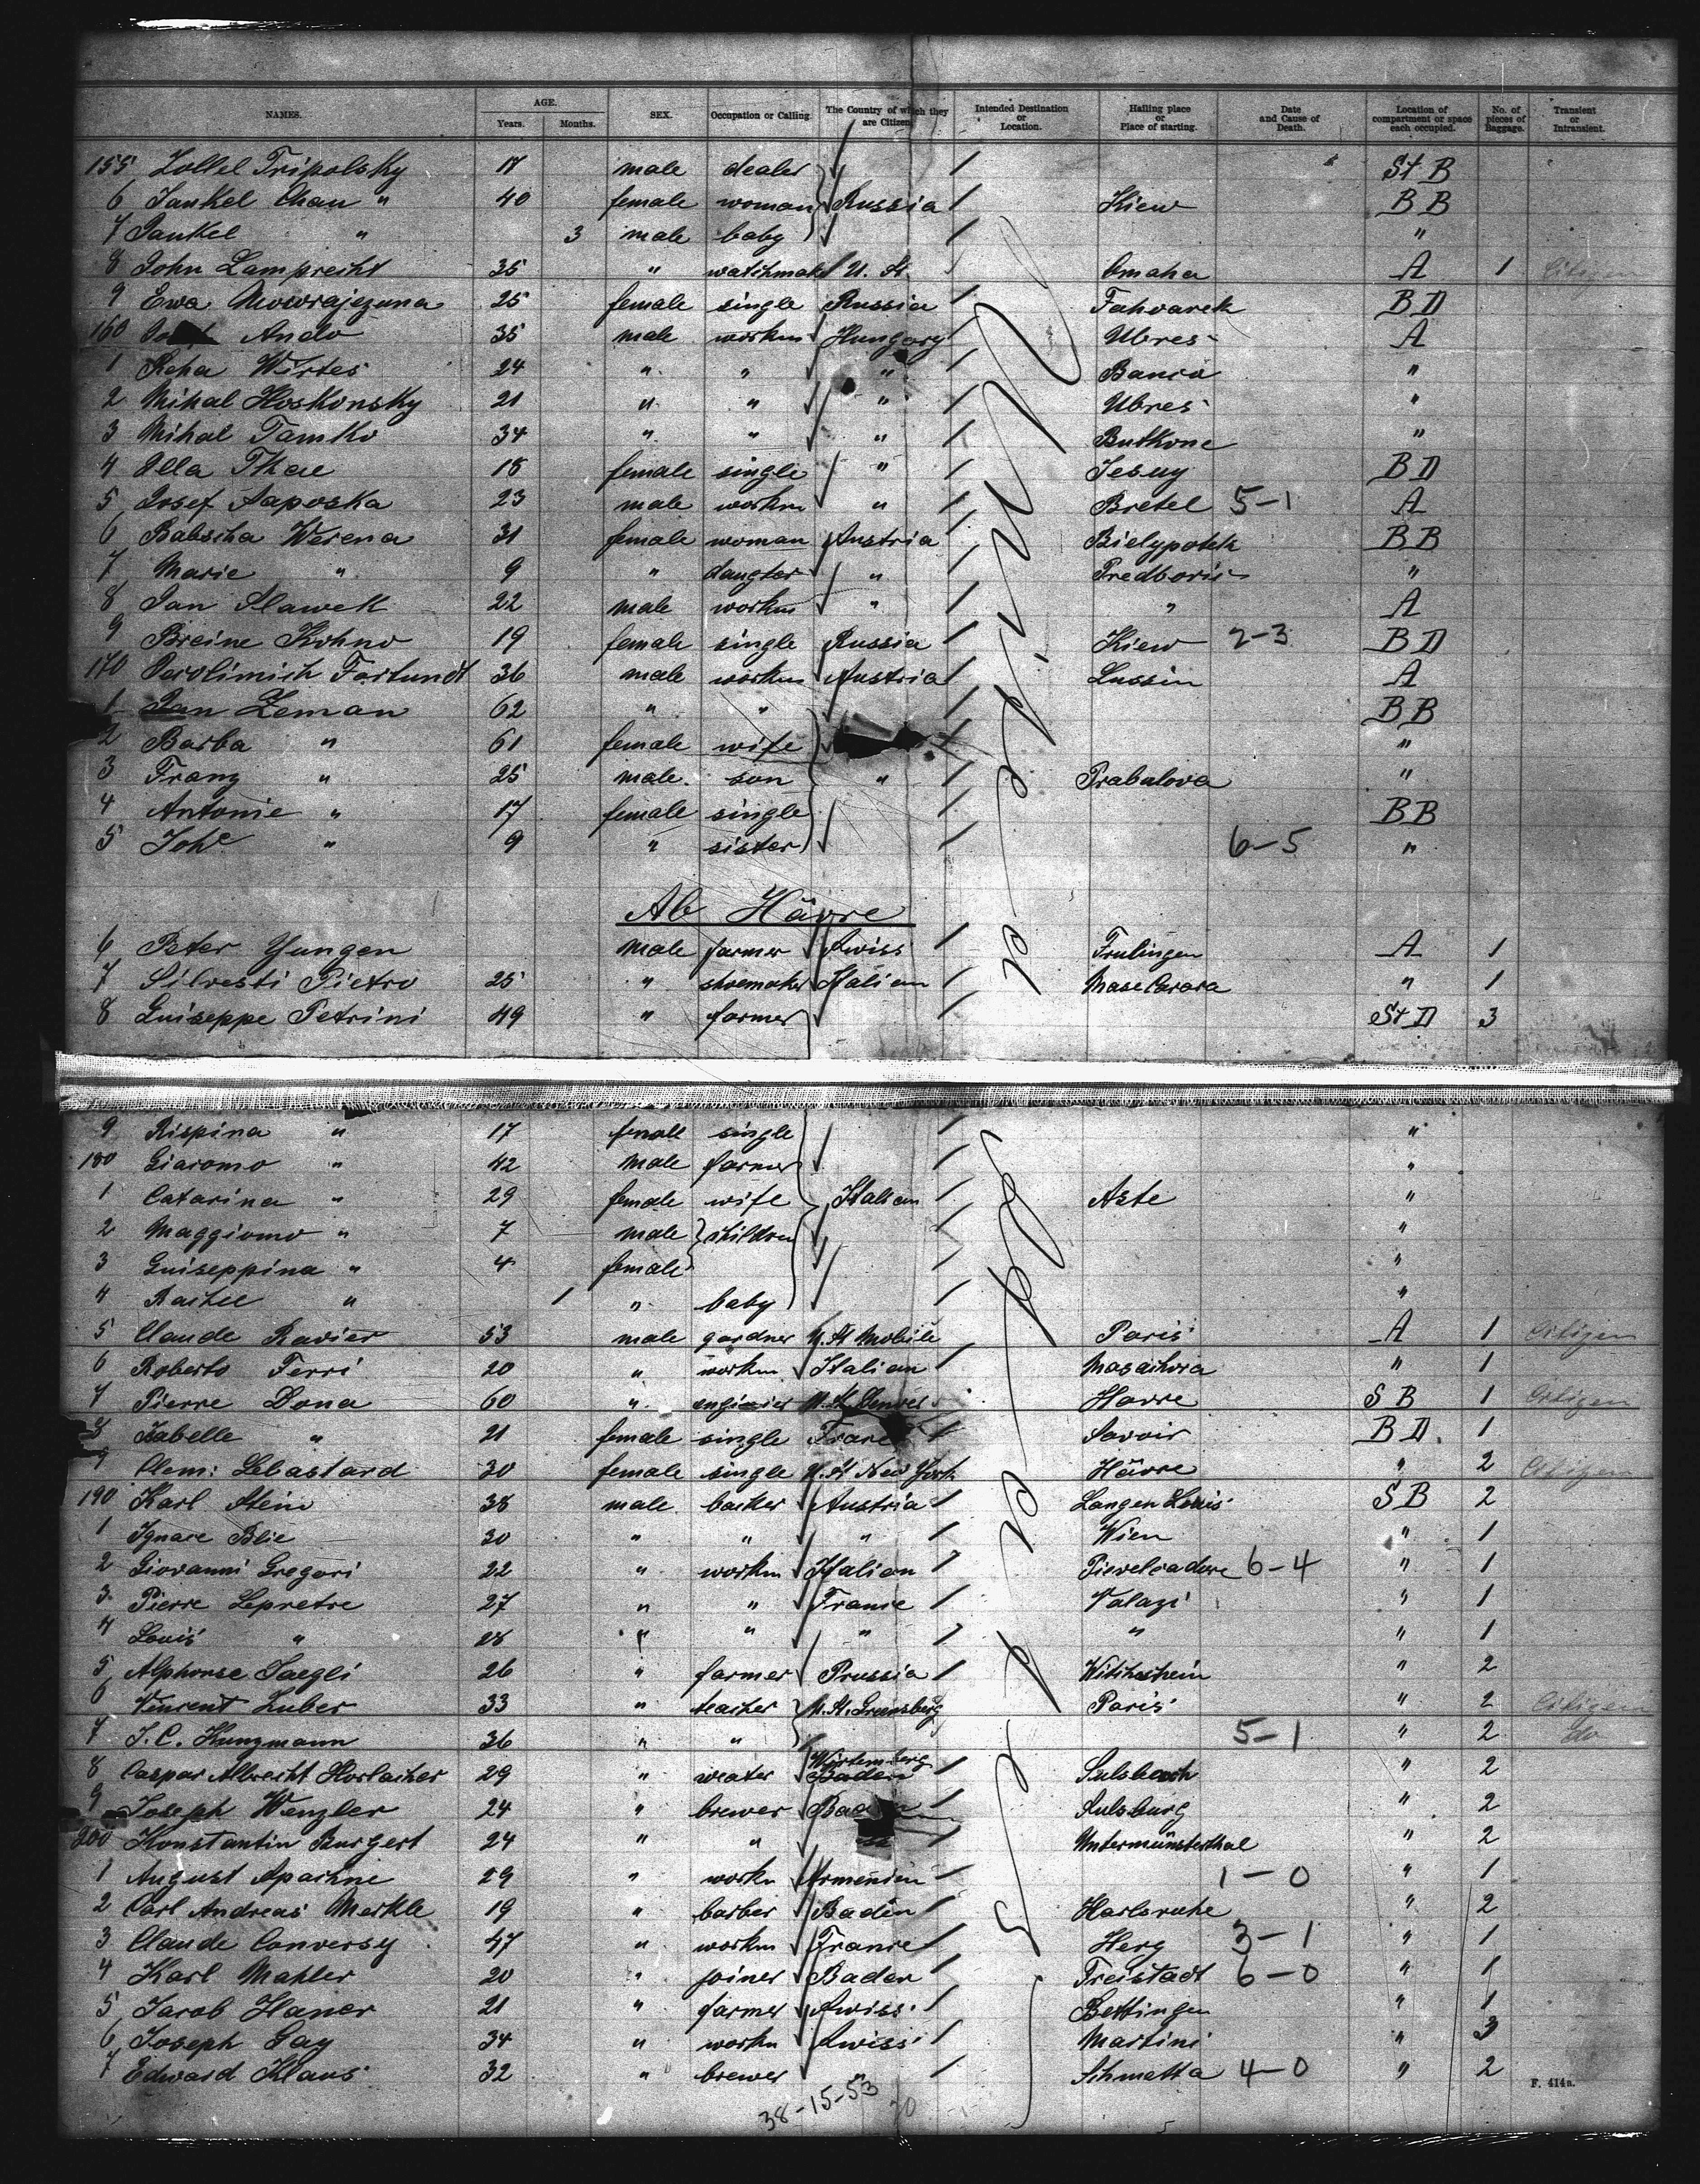 NAMES. AGE. Years. Months. SEX. Occupation or Calling. The Country of which they are Citizens. Intended Destination or Location. Hailing place or Place of starting. Date and Cause of Death. Location of compartment or space each occupied. No. of pieces of Baggage. Transient or Intransient.
155 Zollel Tripolsky 17 male dealer St B
6 Jankel Chau " 40 female woman Russia Kiew BB
7 Jankel " 3 male baby "
8 John Lamprecht 35 " watchmak U. St. Omaha A 1 Citizen
9 Ewa 25 female single Russia Fahvarek BD
160 Ando 35 male workm Hungary Ubres A
1 Reha Wirtes 24 " " " Banca "
2 Mihal Hoskonsky 21 " " " Ubres "
3 Mihal Tamko 34 " " " Butkone "
4 Illa Thae 18 female single " BD
5 Josef Saposka 23 male workm " Bretel 5-1 A
6 Babscha Werena 31 female woman Austria Bielypotok BB
7 Marie " 9 " daugter " Predboric "
8 Jan Slawek 22 male workm " " A
9 Breine Kohno 19 female single Russia Kiew 2-3 BD
170 Fortunat 36 male workm Austria Lussin A
1 Jan Zeman 62 " " BB
2 Barba " 61 female wife "
3 Franz " 25 male son " Prabalova "
4 Antonie " 17 female single BB
5 Johe " 9 " sister 6-5 "
Ab Hâvre
6 Peter Yungen male farmer Swiss Frulingen A 1
7 Silvesti Pietro 25 " shoemaker Italian Mase Carara " 1
8 Guiseppe Petrini 49 " farmer St D 3
9 Rispina " 17 female single "
180 Giacomo " 42 male farmer "
1 Catarina " 29 female wife Italian Aste "
2 Maggiomo " 7 male children "
3 Guiseppina " 4 female "
4 Rachel " 1 " baby "
5 Claude Ravier 53 male gardner U. St Mobile Paris A 1 Citizen
6 Roberto Ferri 20 " workm Italian " 1
7 Pierre Dona 60 " enginier U. St Denver Havre S B 1 Citizen
8 Isabelle " 21 female single France Savoir BD. 1
9 Clem: Lebastard 30 female single U. St New York Hâvre " 2 Citizen
190 Karl Stein 38 male backer Austria Langen Lois S B 2
1 Ignace Blie 30 " " " Wien " 1
2 Giovanni Gregori 22 " workm Italian Pievelcadore 6-4 " 1
3 Pierre Lepretre 27 " " France Valazi " 1
4 Louis " 28 " " " " " 1
5 Alphonse Jaegli 26 " farmer Prussia " 2
6 Vincent Huber 33 " teacher U. St. Greensberg Paris " 2 Citizen
7 J. C. Kunzmann 36 " " 5-1 " 2 do
8 Caspar Albrecht Horlacher 29 " Würtemberg Baden Sulsbach " 2
9 Joseph Wenzler 24 " brewer Baden Sulsburg " 2
200 Konstantin Burgert 24 " " Untermünsterthal " 2
1 August Apachne 29 " workn Armenien 1-0 " 1
2 Carl Andreas Merkle 19 " barber Baden Karlsruhe " 2
3 Claude Conversy 47 " workm France Herg 3-1 " 1
4 Karl Mahler 20 " joiner Baden Freistadt 6-0 " 1
5 Jacob Haner 21 " farmer Swiss Bettingen " 1
6 Joseph Gay 34 " workn Swiss Martini " 3
7 Edward Klaus 32 " brewer Schmatta 4-0 " 2
F. 414a.
38-15-53